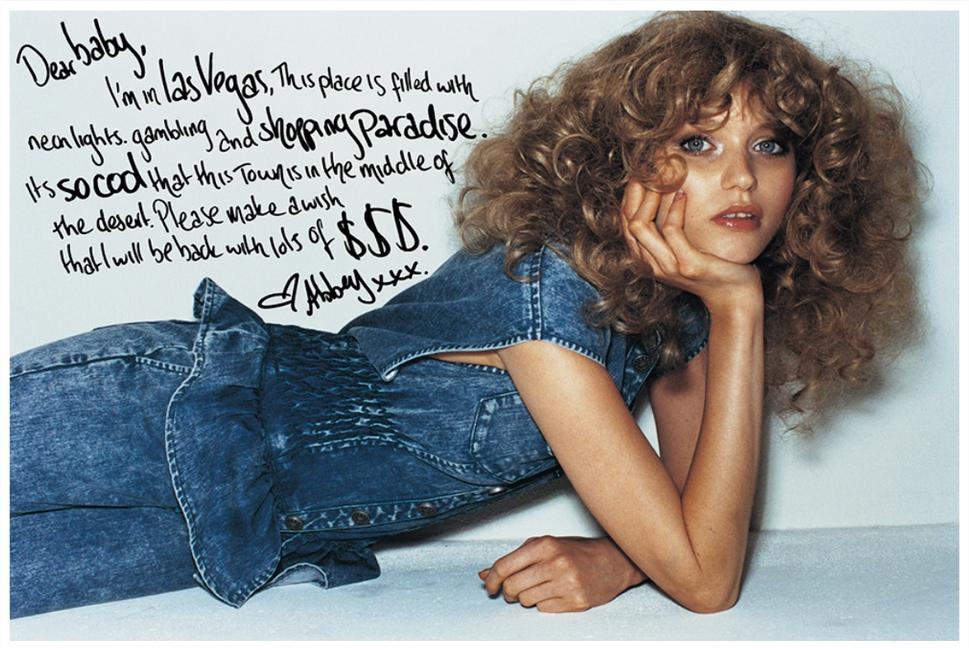 Dear baby,
I'm in las Vegas, This place is filled with
neon lights. gambling and shopping paradise.
It's so cool that this Town is in the middle of
the desert. Please make a wish
that I will be back with lots of $$$.
Abbey xxx.